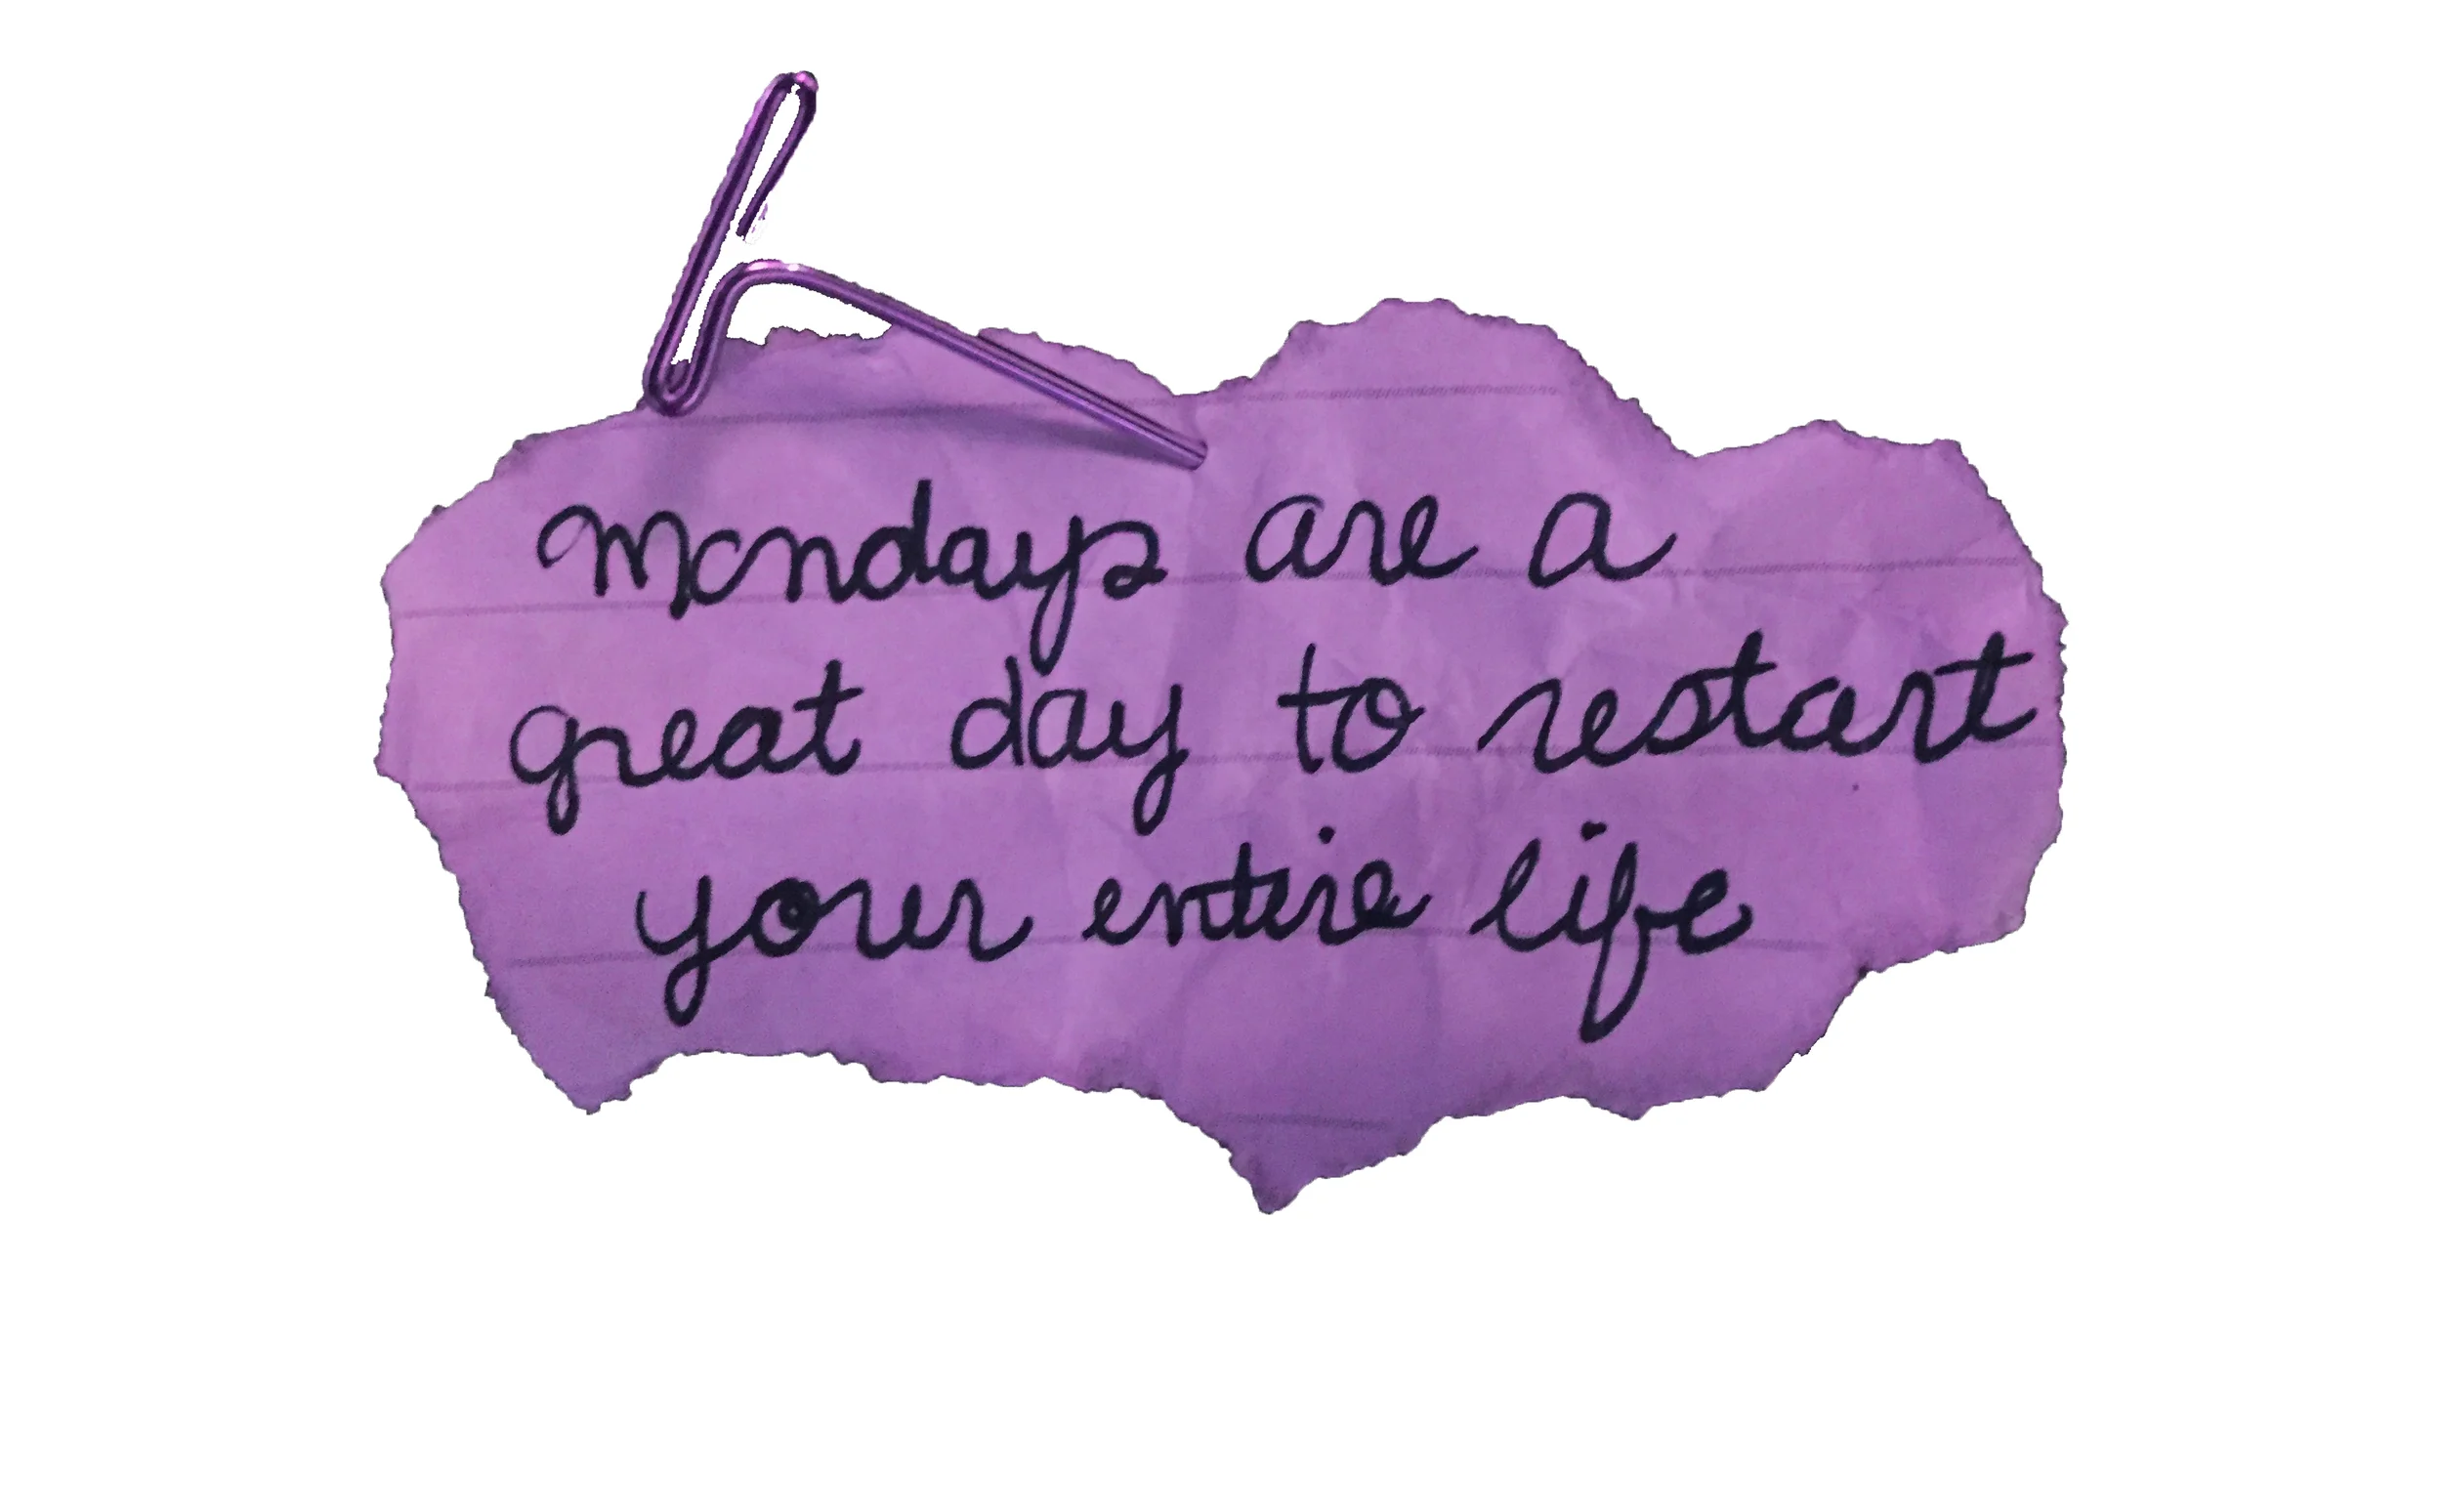 Mondays are a
great day to restart
your entire life